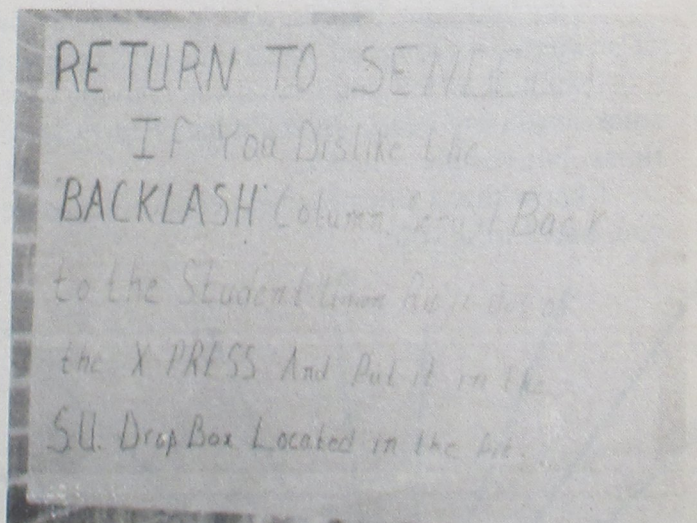 RETURN TO SENDER!
If You Dislike the
"BACKLASH" Column, Send it Back
to the Student Union Pull it out of
the X PRESS And Put it in the
S.U. Drop Box Located in the